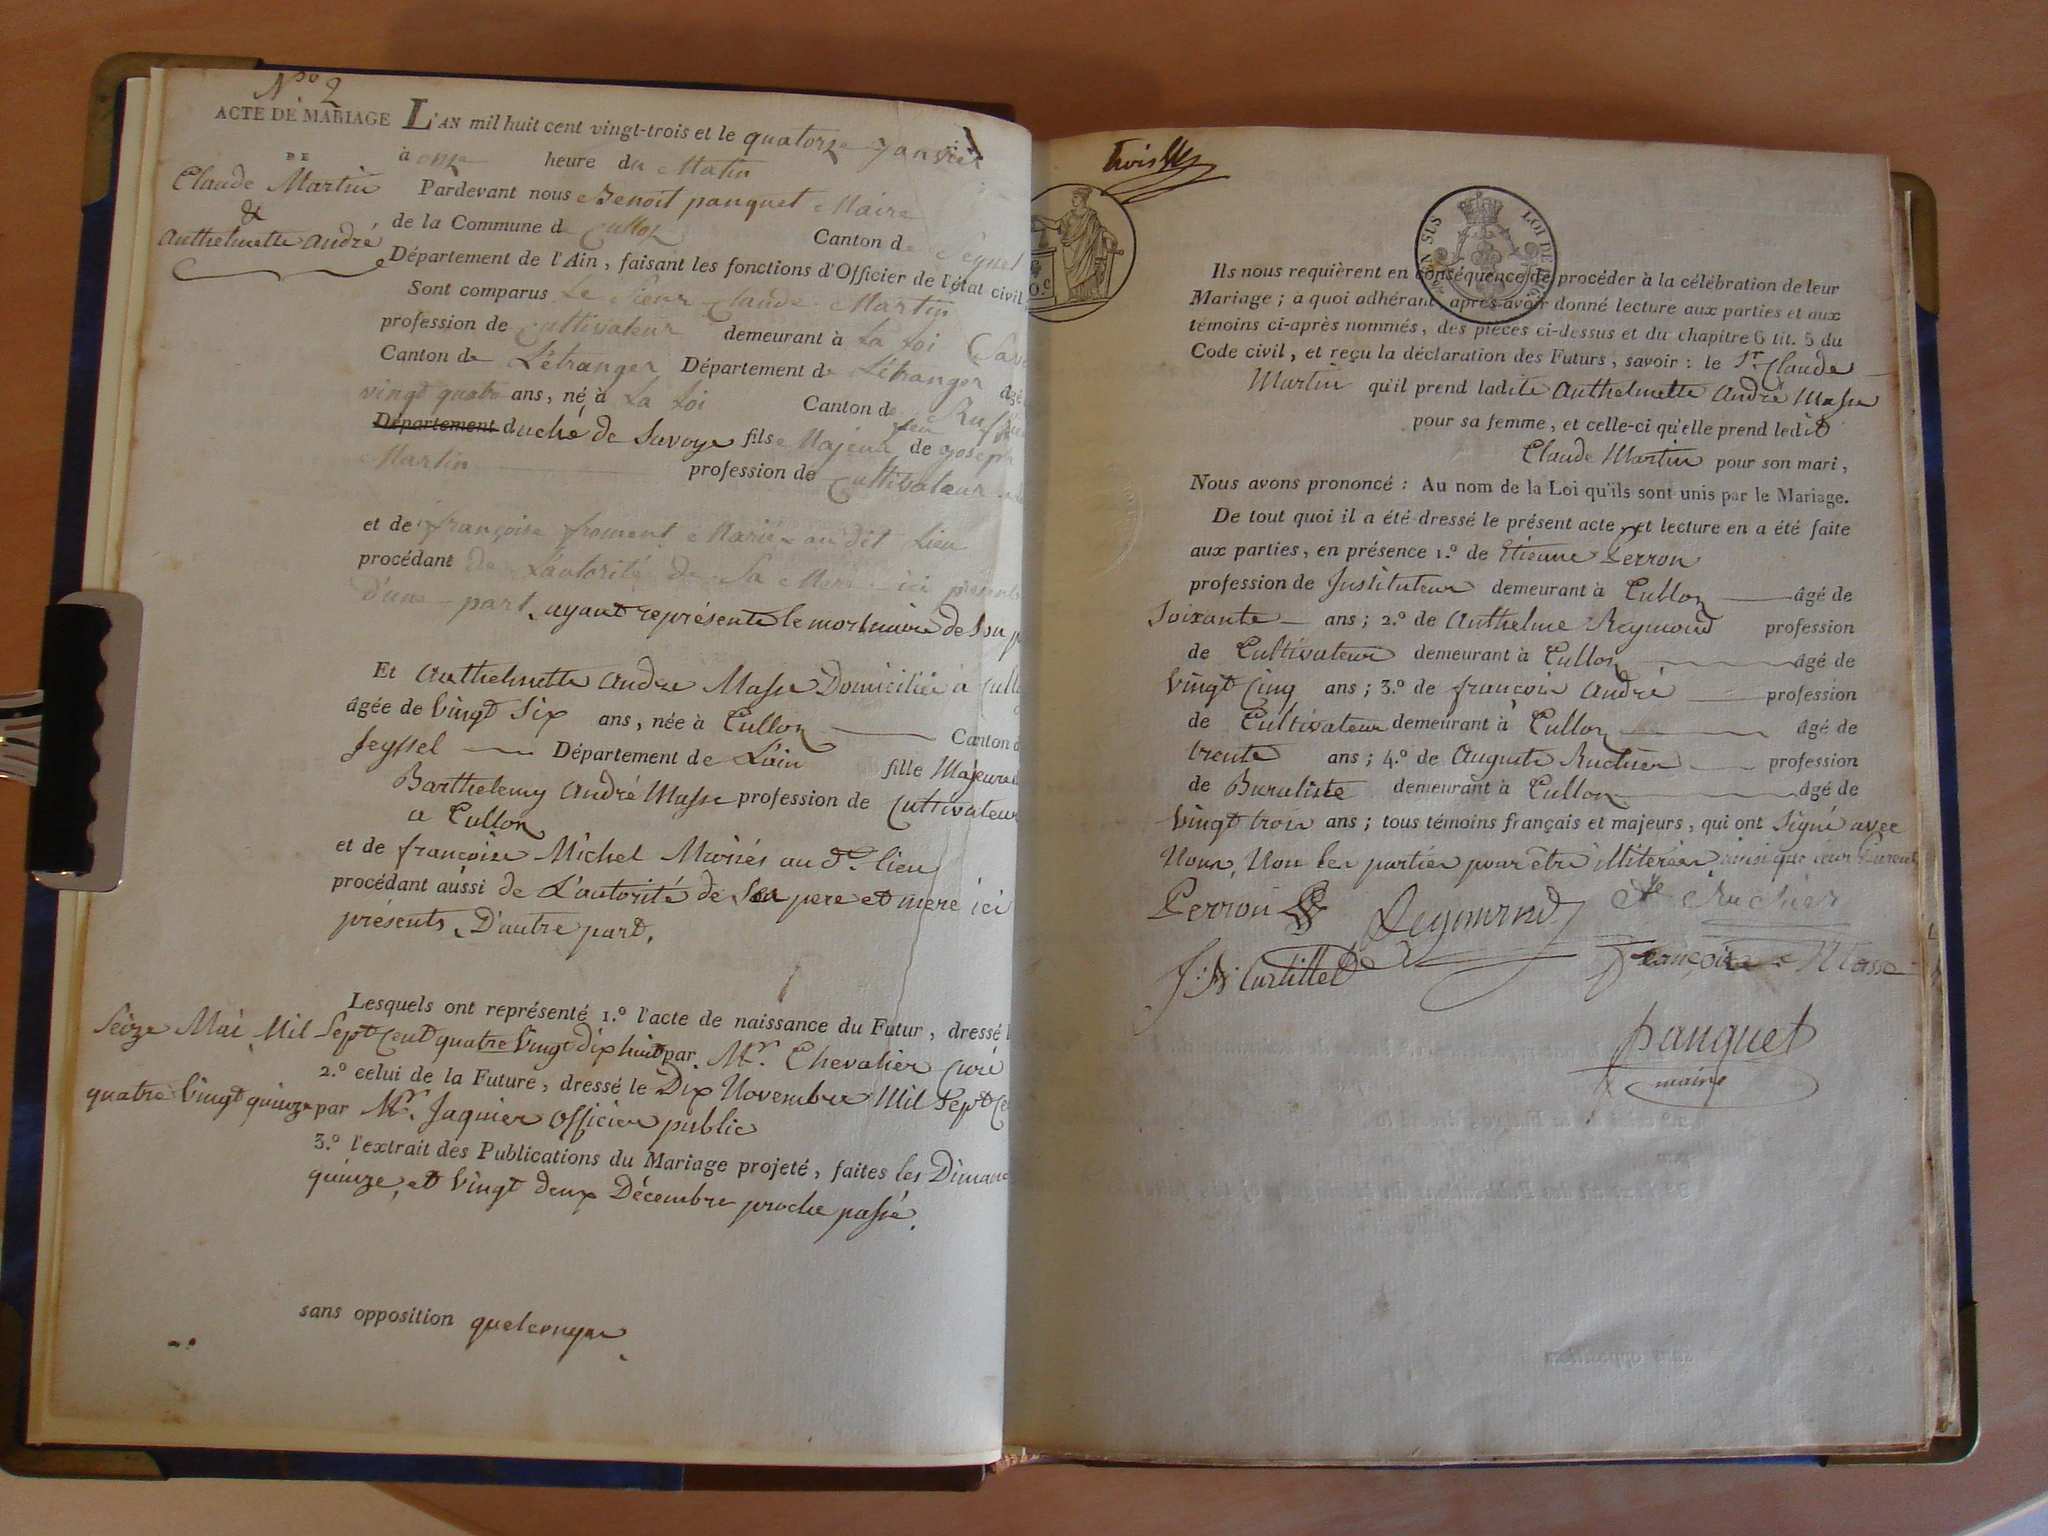 N.ro 2
ACTE DE MARIAGE
DE
Claude Martin
&
Anthelmette André
L'AN mil huit cent vingt-trois et le quatorze janvier
à onze heure du Matin
Pardevant nous Benoit panquet Maire
de la Commune de Culloz Canton de Seyssel
Département de l'Ain, faisant les fonctions d'Officier de l'état civil
Sont comparus Le Sieur Claude Martin
profession de Cultivateur demeurant à La Loi
Canton de L'étranger Département de L'étranger âgé
vingt quatre ans, né à La Loi Canton de
Département duché de Savoye fils Majeur de feu joseph
Martin profession de Cultivateur
et de françoise froment Mariés au dit Lieu
procédant de L'autorité de Sa Mère ici présente
d'une part, ayant représenté le mortuaire de Son
Et Anthelmette André Masse Domiciliée à
âgée de Vingt Six ans, née à Culloz Canton
Seyssel Département de L'ain fille Majeure
Barthelemy André Masse profession de Cultivateur
a Culloz
et de françoise Michel Mariés au d.t lieu
procédant aussi de L'autorité de Son pere et mere ici
présents, D'autre part.
Lesquels ont représenté 1.º l'acte de naissance du Futur, dressé
Seize Mai Mil Sept Cent quatre Vingt dix huit par Mr. Chevalier Curé
2.º celui de la Future, dressé le Dix Novembre Mil Sept
quatre Vingt quinze par Mr. Jaquier Officier public
3.º l'extrait des Publications du Mariage projeté, faites les
quinze, et Vingt deux Décembre proche passé.
sans opposition quelconque
trois
LOI DE
Ils nous requièrent en conséquence de procéder à la célébration de leur
Mariage ; à quoi adhérant, après avoir donné lecture aux parties et aux
témoins ci-après nommés, des pièces ci-dessus et du chapitre 6 tit. 5 du
Code civil, et reçu la déclaration des Futurs, savoir : le Sr. Claude
Martin qu'il prend ladite Anthelmette André Masse
pour sa femme, et celle-ci qu'elle prend ledit
Claude Martin pour son mari,
Nous avons prononcé : Au nom de la Loi qu'ils sont unis par le Mariage.
De tout quoi il a été dressé le présent acte, et lecture en a été faite
aux parties, en présence 1.º de Etienne Perron
profession de Instituteur demeurant à Culloz âgé de
Soixante ans ; 2.º de Anthelme Reymond profession
de Cultivateur demeurant à Culloz âgé de
Vingt Cinq ans ; 3.º de françois André profession
de Cultivateur demeurant à Culloz âgé de
trente ans ; 4.º de Auguste Ruchier profession
de Buraliste demeurant à Culloz âgé de
Vingt trois ans ; tous témoins français et majeurs, qui ont Signé avec
Nous, Non les parties pour être illitérées, ainsi que leurs Parents
Perron Reymond Ate Ruchier
françois Masse
panquet
maire